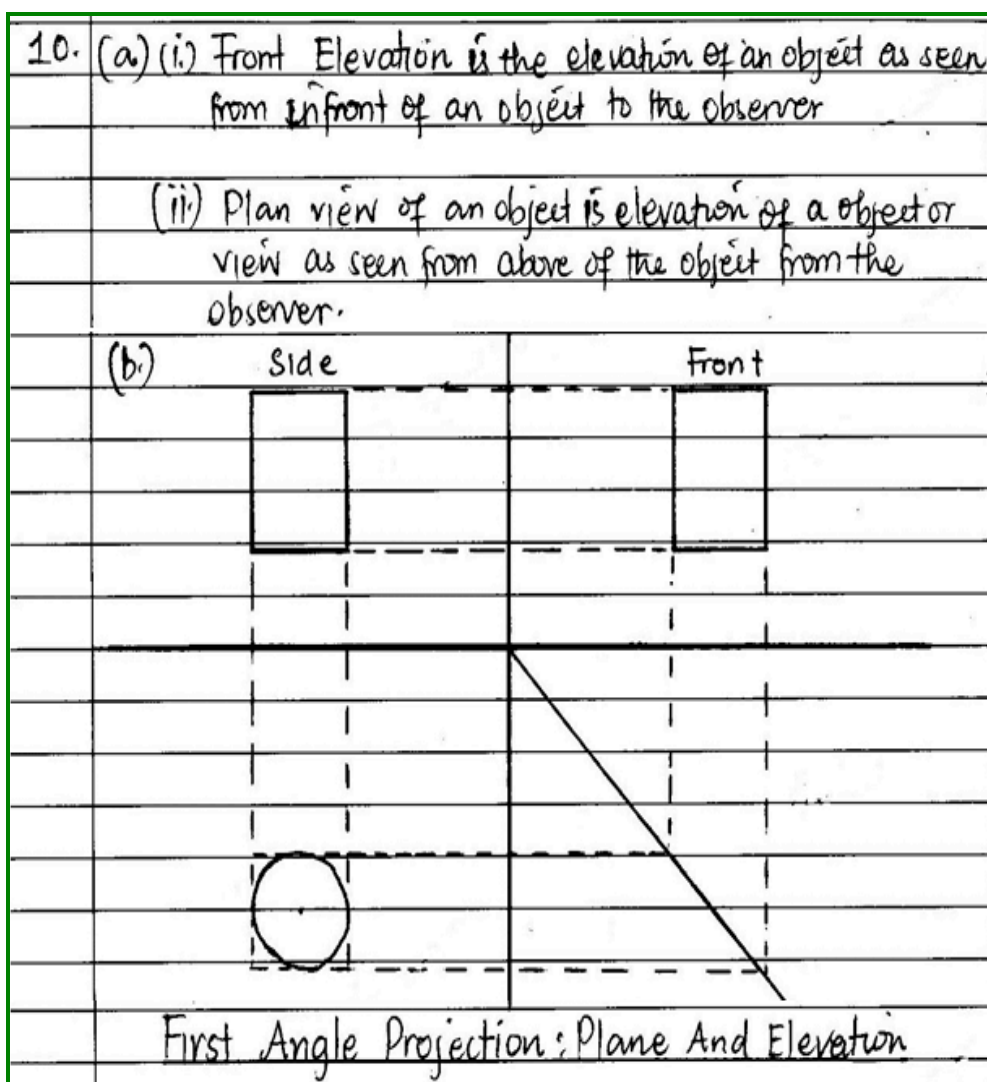 10. (a) (i.) Front Elevation is the elevation of an object as seen
from infront of an object to the observer
(ii.) Plan view of an object is elevation of a object or
view as seen from above of the object from the
observer.
(b.) Side Front
First Angle Projection : Plane And Elevation